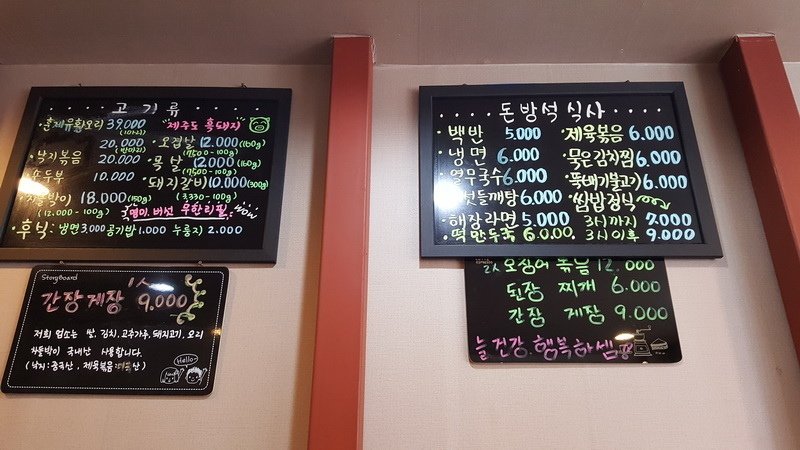 고기류
훈제유황오리 39,000
(1마리)
20,000
(반마리)
낙지볶음 20,000
손두부 10,000
차돌박이 18.000 (150g)
(12.000-100g)
"제주도 흑돼지"
오겹살 12.000 (160g)
(7500-100g)
목살 12000 (160g)
(7500-100g)
돼지갈비 10,000 (300g)
(3,330-100g)
버섯 무한리필. wow
후식: 냉면 3,000 공기밥 1.000 누룽지 2.000
StoryBoard
간장게장 9.000
저희 업소는 쌀, 김치, 고추가루, 돼지고기, 오리
차돌박이 국내산 사용합니다.
(낙지:중국산, 제육볶음
Hello~
돈방석 식사
백반 5.000
냉면 6.000
열무국수 6,000
버섯들깨탕 6,000
해장라면 5.000
떡만두국 6000.
제육볶음 6.000
묵은김치찜 6.000
뚝배기불고기 6.000
쌈밥정식
3시까지 7.000
3시이후 9.000
2人 오징어 볶음 12.000
된장 찌개 6.000
간장 게장 9.000
늘 건강. 행복하셈